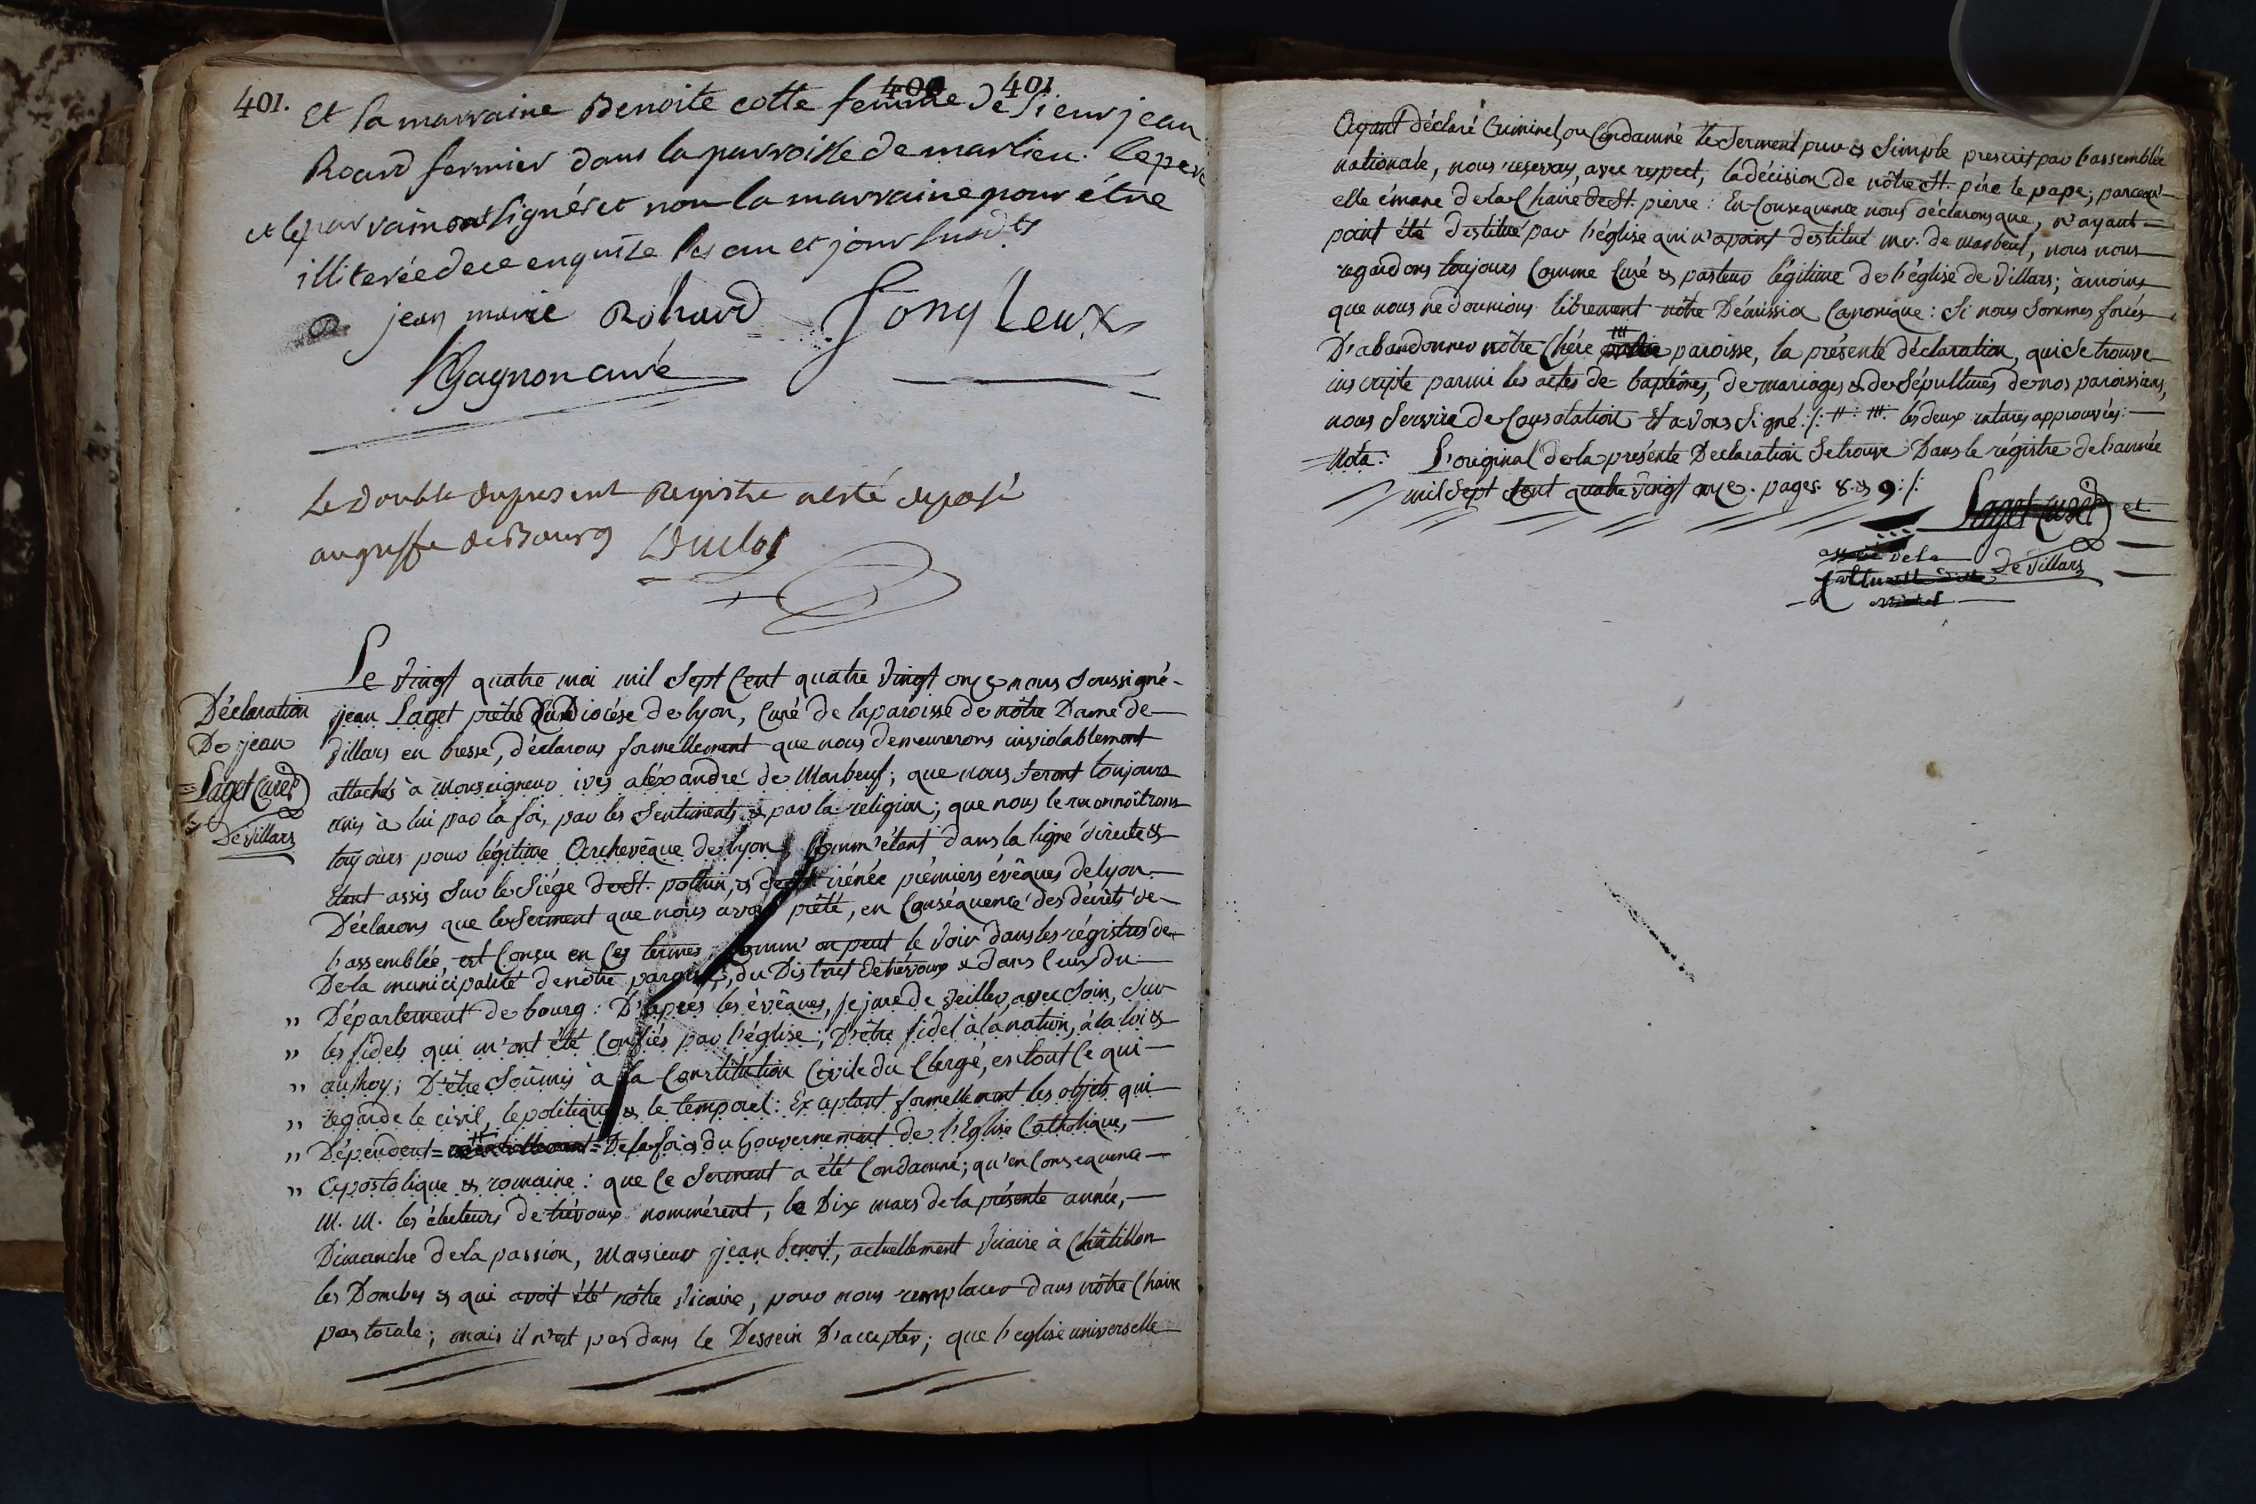 401.
400 401
Et la marraine Benoite cotte femme de Sieur jean
Roard fermier dans la parroisse de marlieu. le pere
et le parrain ont signés et non la marraine pour être
illiterée de ce enquise les an et jour susdts
jean marie Rohard Tony Leux
Gagnon curé
Le double du present Registre a esté deposé
au greffe de Bourg Duclos
Déclaration
De jean
Laget Curé
De Villars
Le vingt quatre mai mil Sept Cent quatre vingt onze nous soussigné
jean Laget prêtre Du Diocése de lyon, Curé de la paroisse de nôtre Dame de
villars en bresse, déclarons formellement que nous demeurerons inviolablement
attachés à Monseigneur ives aléxandre de Marbeuf; que nous seront toujours
unis à lui par la foi, par les Sentiments & par la religion; que nous le reconnoîtrons
toujours pour légitime Archevêque de lyon, Comm'étant dans la ligne directe &
étant assis sur le Siége de St. pothin, & de St. irénée prémiers évêques de lyon.
Déclarons que le Serment que nous avons prêté, en Conséquence des décrêts de
l'assemblée est Conçu en Ces termes Comm' on peut le voir dans les régistres de
De la municipalité de nôtre paroisse, du District de trévoux & dans Ceux du
„ Département de bourg: D'aprés les évêques, je jure de veiller, avec soin, sur
„ les fidels qui m'ont été Confiés par l'église; D'être fidel à la nation, à la loi &
„ au Roy; D'être Soûmis à la Constitution Civile du Clergé, en tout Ce qui
„ regarde le civil, le politique & le temporel: Exceptant formellement les objets qui
„ Dépendent = = De la foi & du Gouvernement de l'Eglise Catholique,
„ Apostolique & romaine: que Ce Serment a été Condamné; qu'en Consequence
M. M. les électeurs de trévoux nommérent, le Dix mars de la présente année,
Dimanche de la passion, Monsieur jean benoit, actuellement vicaire à Châtillon
les Dombes & qui avoit été nôtre vicaire, pour nous remplacer dans nôtre Chaire
pastorale; mais il n'est pas dans le Dessein D'accepter; que l'eglise universelle
Ayant déclaré Criminel, ou Condamné le Serment pur & Simple prescrit par l'assemblée
nationale, nous recevons, avec respect, la décision de nôtre St. pére le pape; parcequ'
elle émane de la Chaire de St. pierre: En Consequence nous déclarons que, n'ayant
point été destitué par l'église qui n'a point destitué mr. de Marbeuf, nous nous
regardons toujours Comme Curé & pasteur légitime de l'église de Villars; à moins
que nous ne donnions librement nôtre Démission Canonique: Si nous sommes forcés
D'abandonner nôtre Chére paroisse, la présente déclaration, qui se trouve
inscripte parmi les actes de baptêmes, de mariages & de Sépultures de nos paroissiens,
nous Servira de Consolation Et avons signé:/: II: III: les deux ratures approuvées:
Nota: L'original de la présente Déclaration se trouve Dans le régistre de l'année
mil Sept Cent quatre vingt onze. pages 8. & 9:/:
Laget Curé et
De Villars